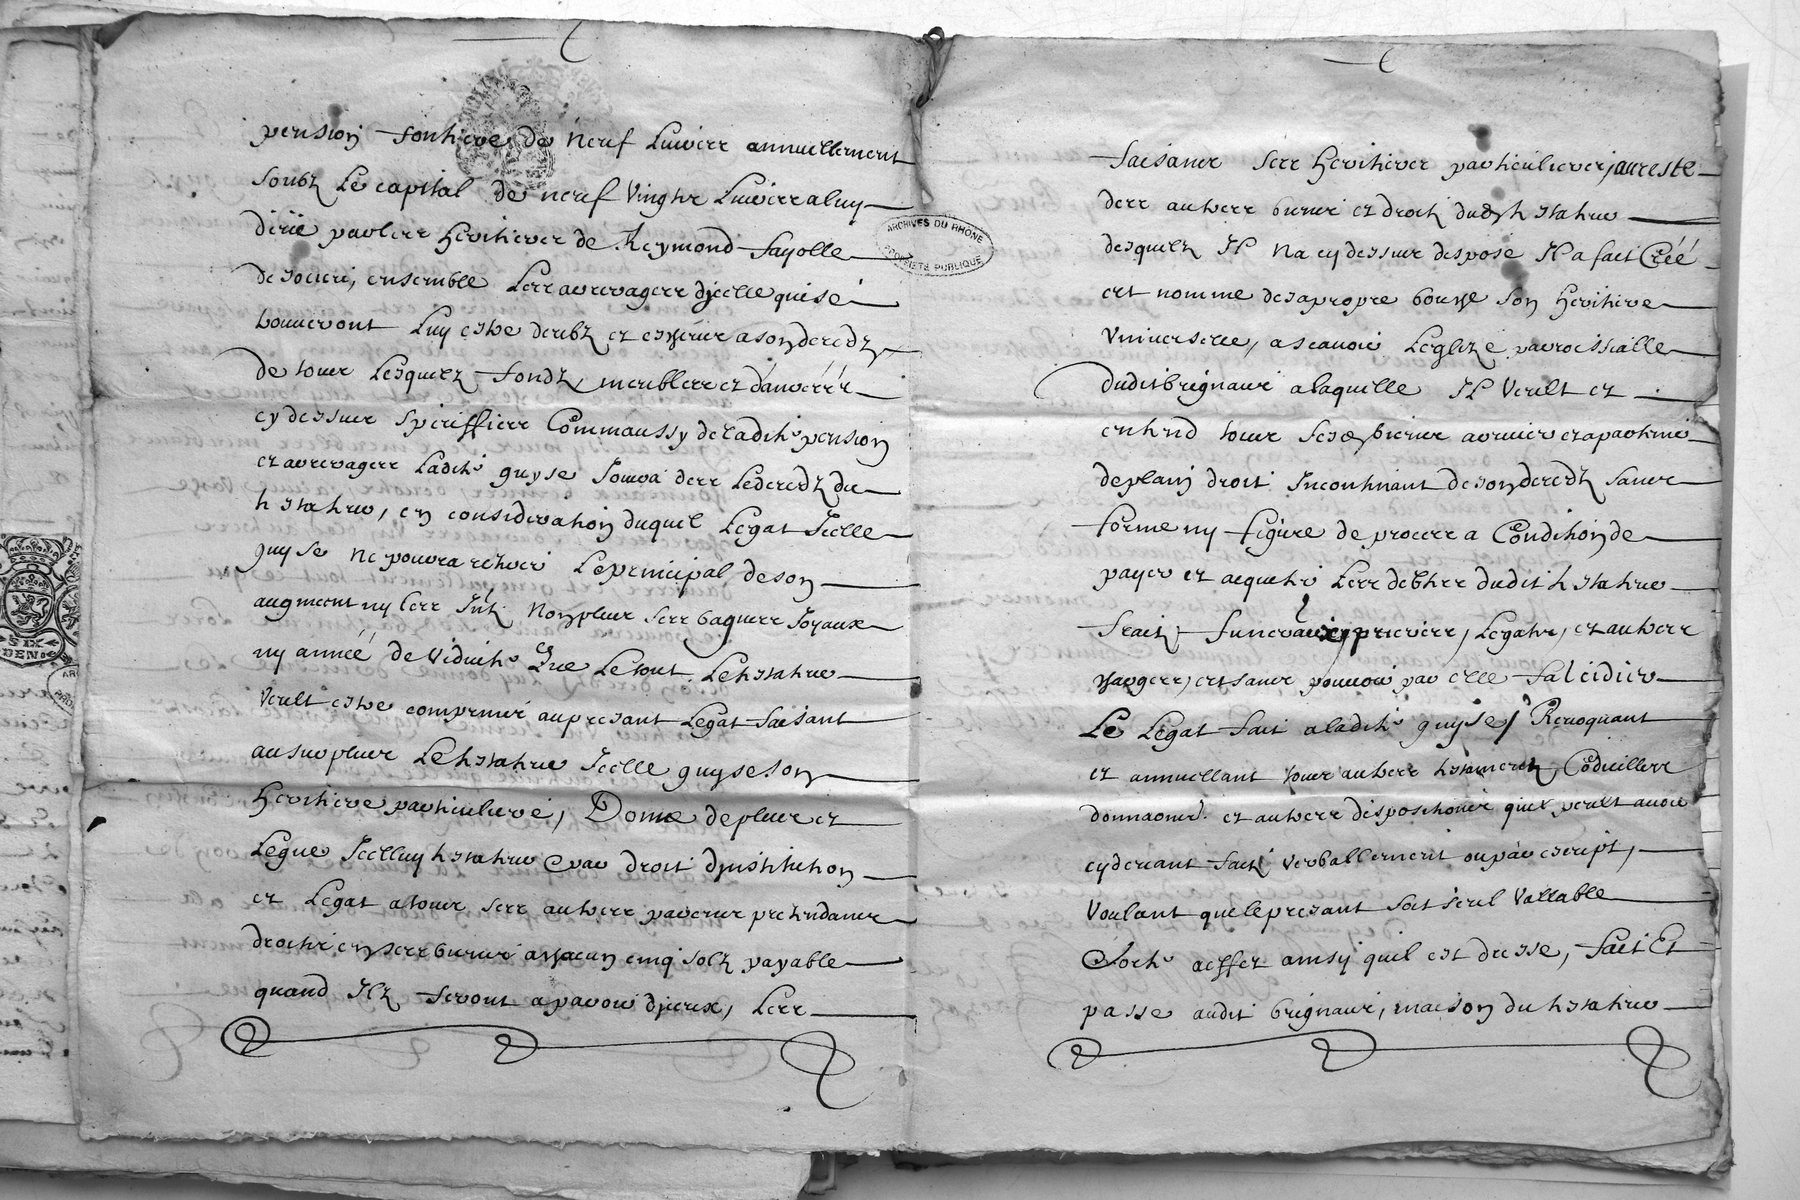 pension fontiere de neuf Livres annuellement
soubz Le capital de neuf Vingtz Livres a luy
deüe par les heritiers de Reymond fayolle
de soucieu, ensemble Les arrerages dicelle qui se
trouveront Luy estre deubz et escheus a son deredz
de tous Lesquelz fondz, meubles et danrées
cy dessus speciffies Commaussy de ladite pension
et arrerages Ladite guyse Jouira des Le deredz du
testateur, en consideration duquel Legat Icelle
guyse ne pourra retirer Le principal de son
augment ny les Intz Non plus ses bagues Joyaux
ny année de viduité Que Le tout Le testateur
veult estre comprins au presant Legat faisant
au surplus Le testateur Icelle guyse son
heritiere particuliere, Donne de plus et
Legue Icelluy testateur par droit d'institution
et Legat a tous ses autres parens pretendans
droitz en ses biens a chacun cinq solz payable
quand Ilz feront aparoir d'iceux, Les
ARCHIVES DU RHÔNE
PROPRIÉTÉ PUBLIQUE
faisant ses heritiers particuliers, au reste
des autres biens et droitz dudit testateur
desquelz Il na cy dessus disposé Il a fait Créé
et nommé de sa propre bouche son heritiere
Universelle, a scavoir Leglize parroissialle
dudit brignais a laquelle Il veult et
entend tous ses biens arriver et apartenir
de plain droit Incontinant de son deredz sans
forme ny figure de proces a Condition de
payer et acquitter Les debtes dudit testateur
fraitz funeraux, prieres, Legatz, et autres
charges, et sans pouvoir par elle falcidier
Le Legat fait a ladite guyse, Revoquant
et annullant tous autres testamentz, Codicilles
donnaons. et autres dispositions quil peult avoir
cy devant faitz verballement ou par escript,
voulant que le presant soit seul vallable
Sorte a effet ainsy quil est dresse, fait Et
passe audit brignais, maison du testateur